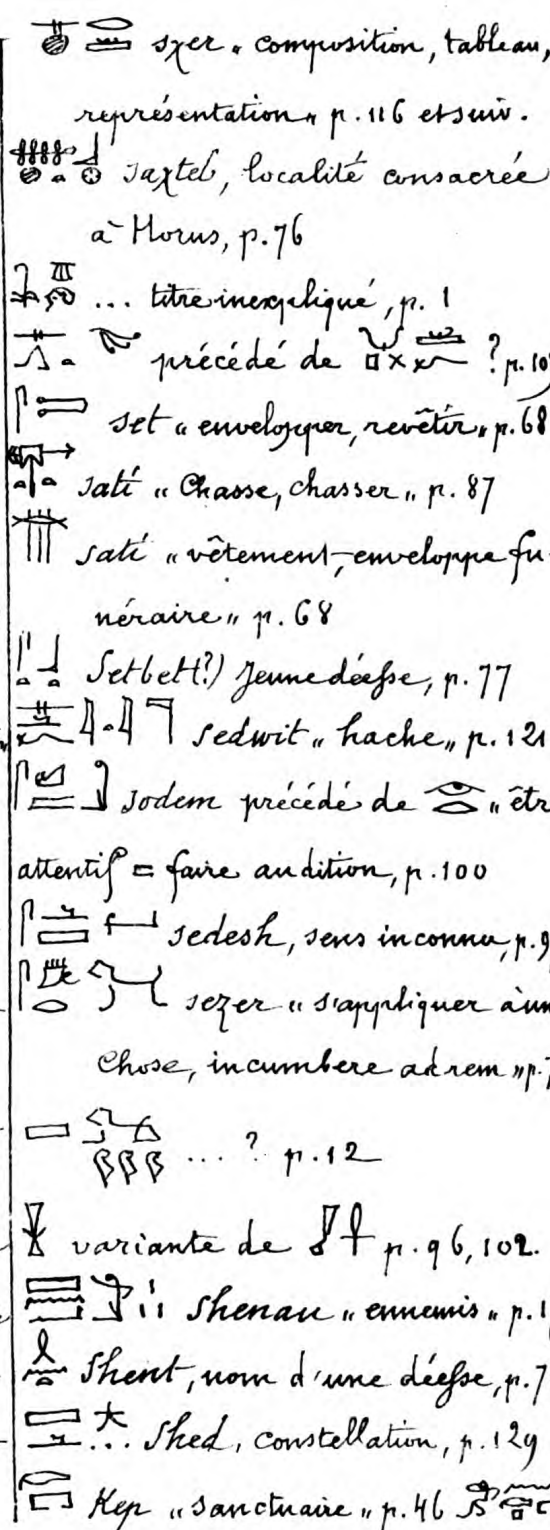 sχer „ composition, tableau,
représentation „ p. 116 et suiv.
saχteb, localité consacrée
à Horus, p. 76
... titre inexpliqué, p. 1
précédé de ? p. 10
set „ envelopper, revêtir „ p. 68
sati „ Chasse, chasser „ p. 87
sati „ vêtement, enveloppe fu-
néraire „ p. 68
Setbet(?) Jeune déesse, p. 77
sedwit „ hache „ p. 121
sodem précédé de „ êtr
attentif = faire audition, p. 100
sedesh, sens inconnu, p. 9
sezer „ s'appliquer à un
Chose, incumbere ad rem „ p. 7
... ? p. 12
variante de p. 96, 102.
Shenau „ ennemis „ p. 1
Shent, nom d'une déesse, p. 7
... Shed, constellation, p. 129
Kep „ sanctuaire „ p. 46